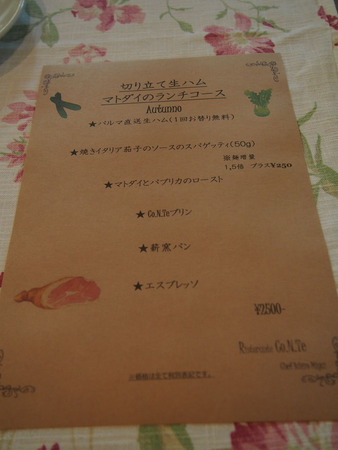 切り立て生ハム
マトダイのランチコース
Autunno
★パルマ直送生ハム(1回お替り無料)
★焼きイタリア茄子のソースのスパゲッティ(50g)
※麺増量
1,5倍 プラス¥250
★マトダイとパプリカのロースト
★Co.N.Teプリン
★薪窯パン
★エスプレッソ
¥2500-
Ristorante Co.N.Te
Chef
※価格は全て税別表記です。